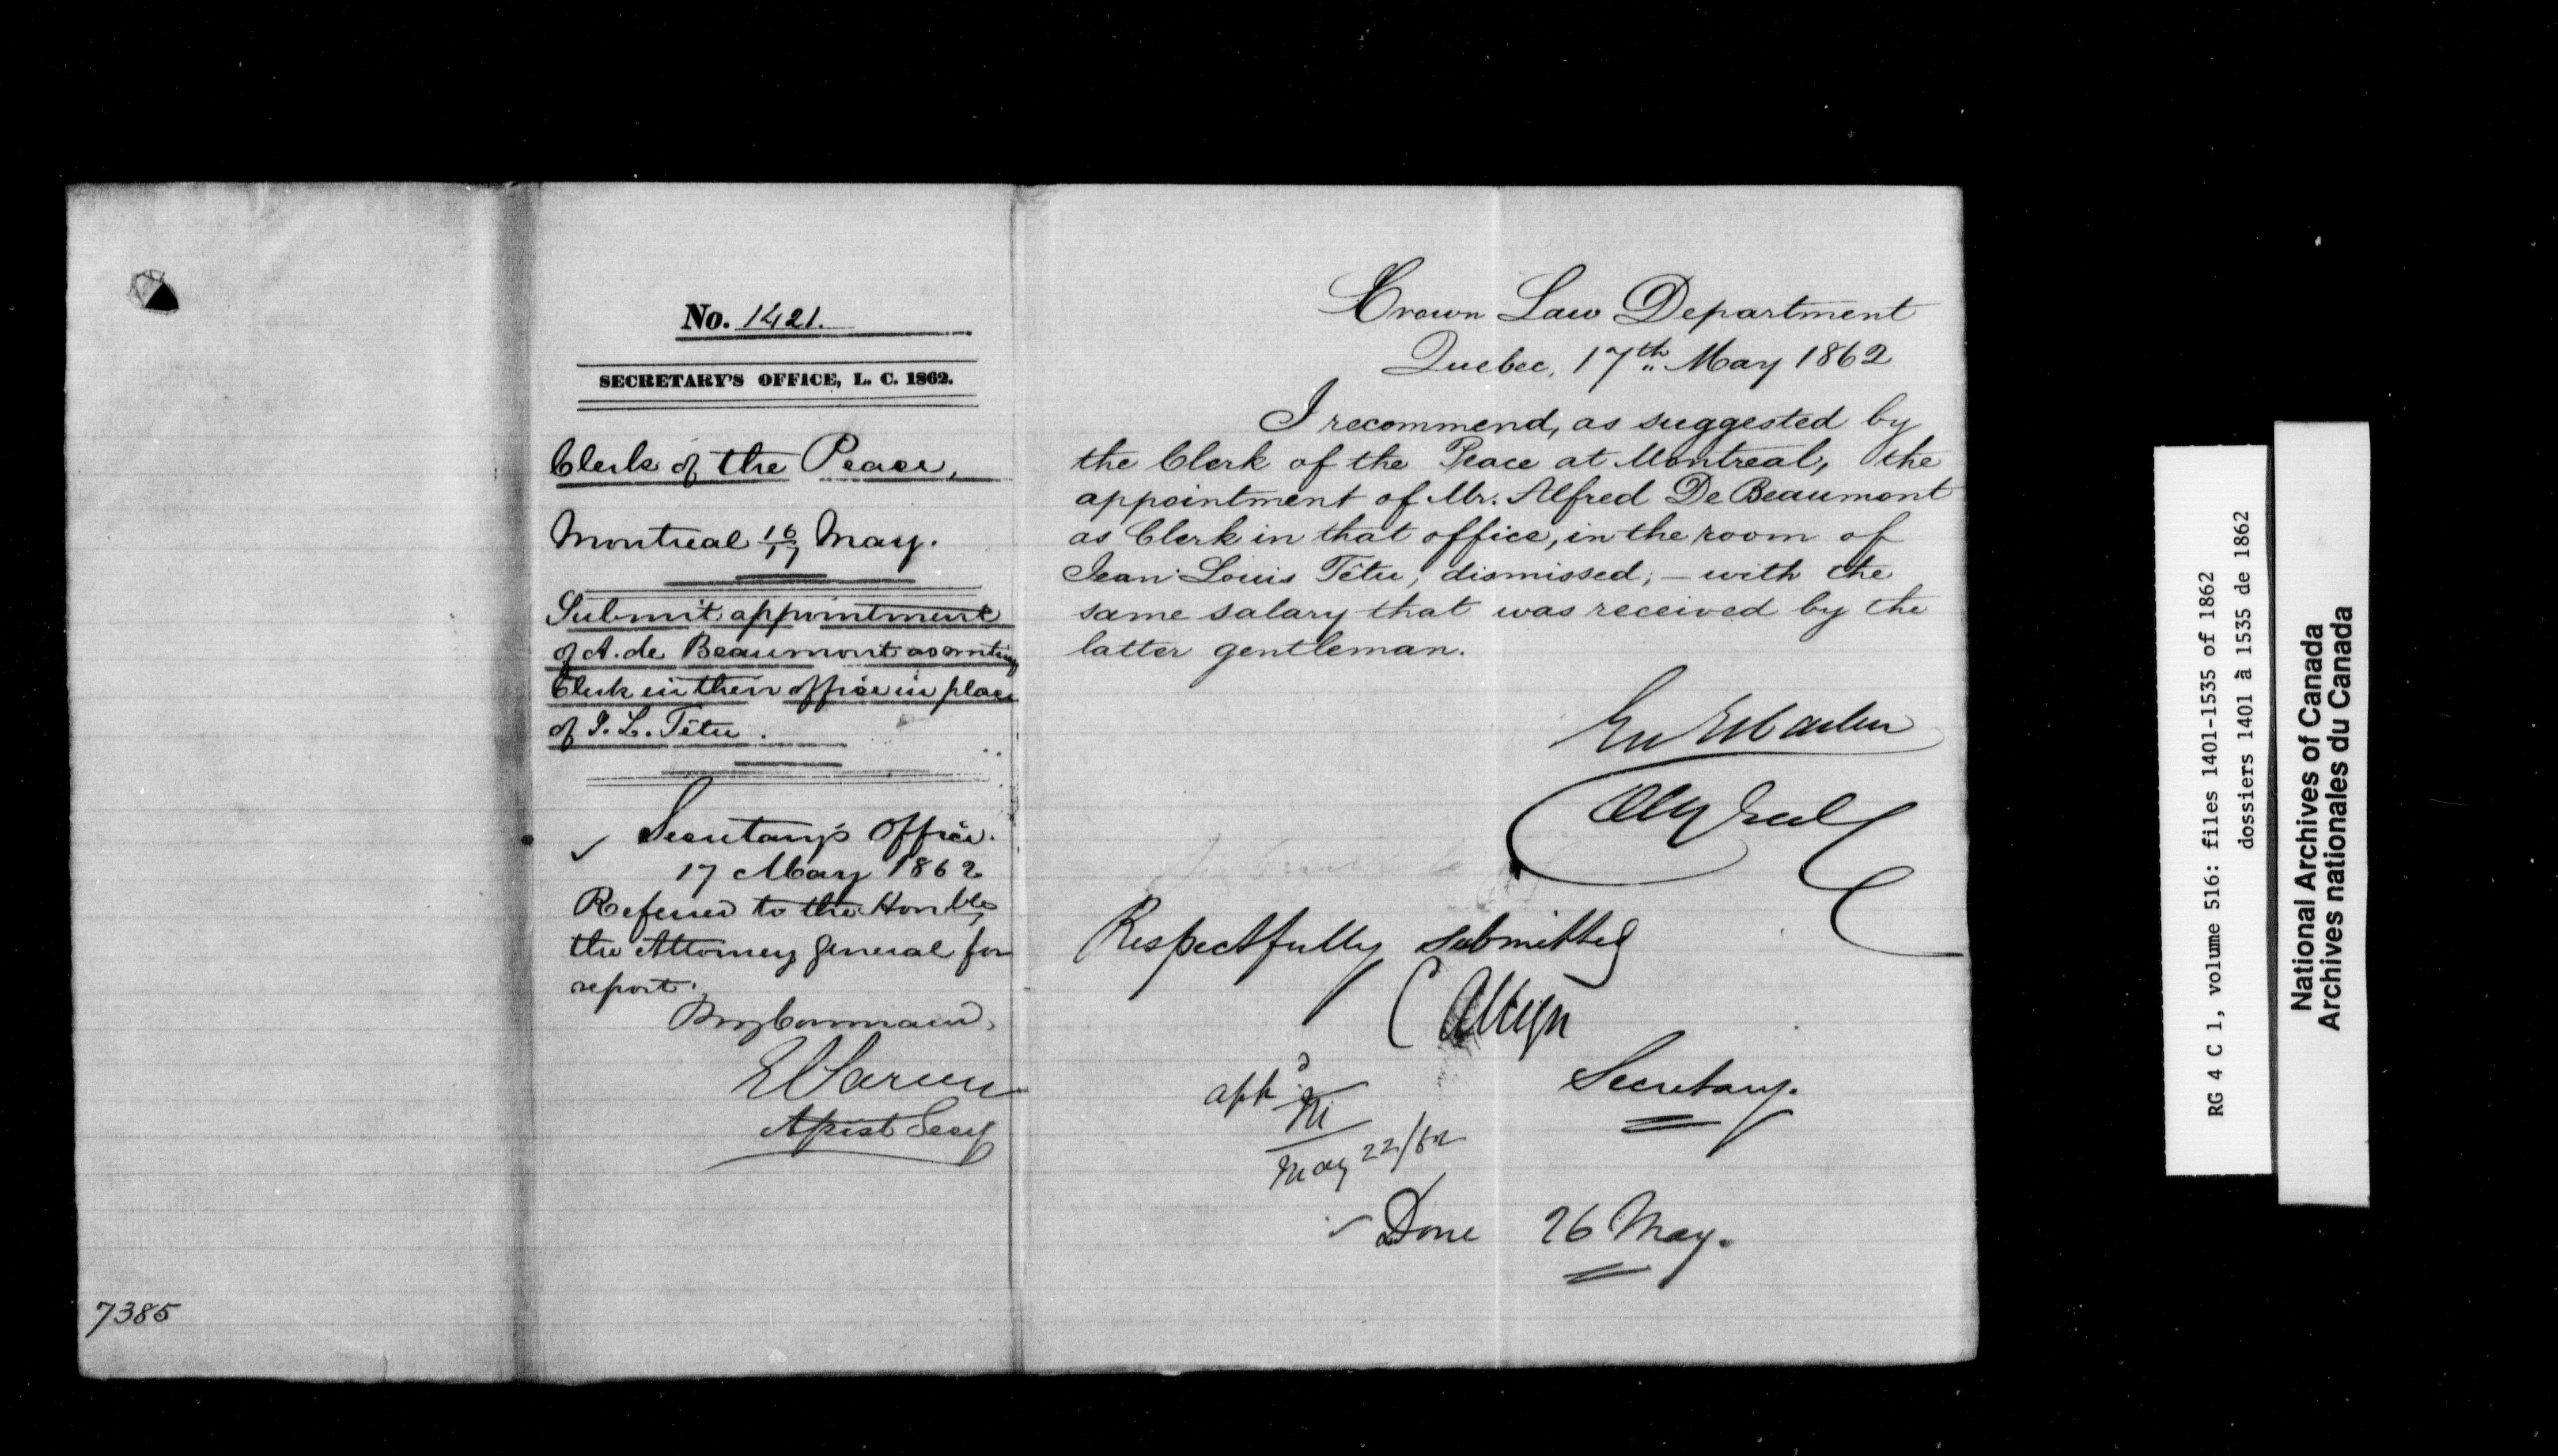 No. 1421.
SECRETARY'S OFFICE, L. C. 1862.
Clerk of the Peace,
Montreal 16/17 May.
Submit appointment
of A. de Beaumont as writing
Clerk in their office in place
of J. L. Têtu.
Secretary's Office.
17 May 1862
Referred to the Honble
the Attorney General for
report.
By Command,
E Parent
Assist Secy
7385
Crown Law Department
Quebec, 17th May 1862
I recommend, as suggested by
the Clerk of the Peace at Montreal, the
appointment of Mr. Alfred De Beaumont
as Clerk in that office, in the room of
Jean Louis Têtu, dismissed; — with the
same salary that was received by the
latter gentleman.
Geo. E. Cartier
Atty Genl
Respectfully submitted
C Alleyn
Secretary.
appd
M
May 22/62
Done 26 May.
RG 4 C 1, volume 516: files 1401-1535 of 1862
dossiers 1401 à 1535 de 1862
National Archives of Canada
Archives nationales du Canada